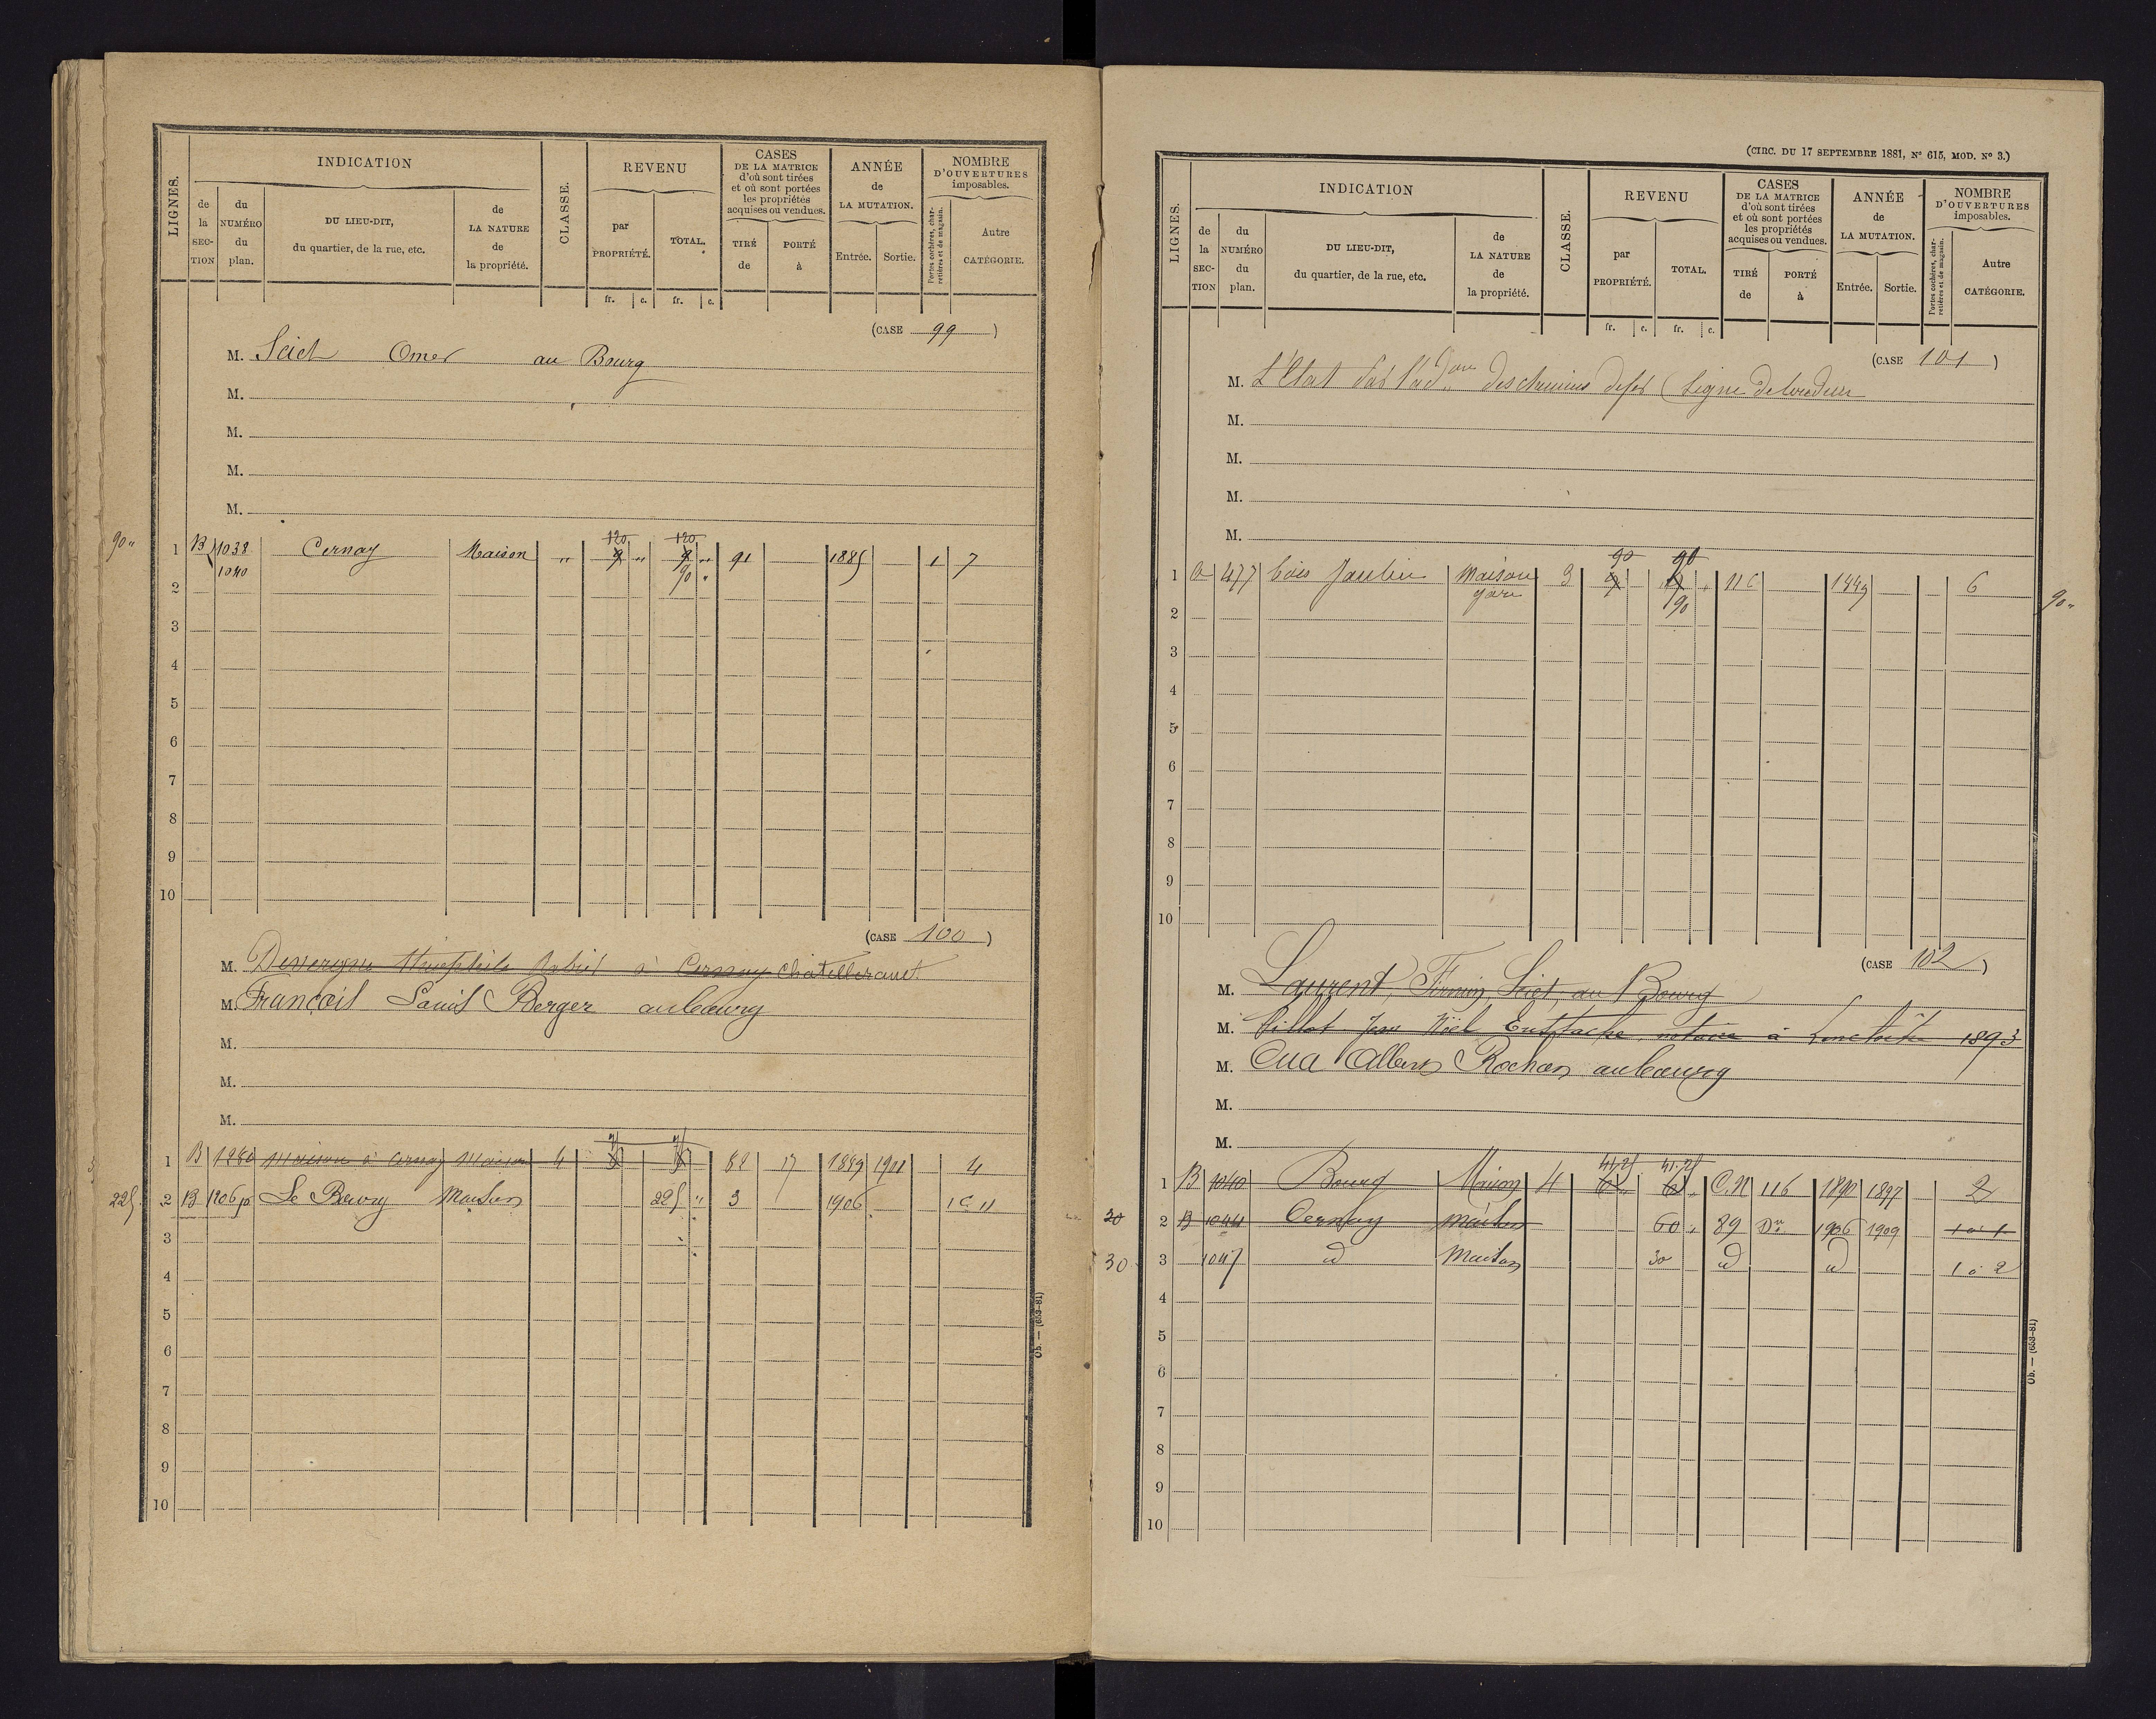 LIGNES.
INDICATION
de la SECTION
du NUMÉRO du plan.
DU LIEU-DIT, du quartier, de la rue, etc.
de LA NATURE de la propriété.
CLASSE.
REVENU
par PROPRIÉTÉ.
TOTAL.
fr. c. fr. c.
CASES DE LA MATRICE d'où sont tirées et où sont portées les propriétés acquises ou vendues.
TIRÉ de
PORTÉ à
ANNÉE de LA MUTATION.
Entrée. Sortie.
NOMBRE D'OUVERTURES imposables.
Portes cochères, charretières et de magasin.
Autre CATÉGORIE.
(CASE 99)
M. Omer au Bourg
M.
M.
M.
M.
90 "
1 B 1038 Cernay Maison " 120 9 " 120 9 " 91 1885 1 7
1040 90 "
2
3
4
5
6
7
8
9
10
(CASE 100)
M. à Cernay Chatellerault
M. François Louis Berger au bourg
M.
M.
M.
1 B 1280 Maison à Cernay Maison 4 82 17 1889 1911 4
225 2 B 1206 p Le Bourg Maison 225 " 3 1906 1 C 11
3
4
5
6
7
8
9
10
Ob. — (653-81)
(CIRC. DU 17 SEPTEMBRE 1881, Nº 615, MOD. Nº 3.)
LIGNES.
INDICATION
de la SECTION
du NUMÉRO du plan.
DU LIEU-DIT, du quartier, de la rue, etc.
de LA NATURE de la propriété.
CLASSE.
REVENU
par PROPRIÉTÉ.
TOTAL.
fr. c. fr. c.
CASES DE LA MATRICE d'où sont tirées et où sont portées les propriétés acquises ou vendues.
TIRÉ de
PORTÉ à
ANNÉE de LA MUTATION.
Entrée. Sortie.
NOMBRE D'OUVERTURES imposables.
Portes cochères, charretières et de magasin.
Autre CATÉGORIE.
(CASE 101)
M. L'Etat des chemins de fer (Ligne de Loudun
M.
M.
M.
M.
1 a 477 bois Maison 3 90 9 90 116 1889 6 90 "
gare 90
2
3
4
5
6
7
8
9
10
(CASE 102)
M. Laurent, Firmin, au Bourg
M. Millot Jean Noël Eustache notaire à Lencloître 1893
M. Albert Rochas au bourg
M.
M.
1 B 1040 Bourg Maison 4 41.25 6 41.25 6 C.N 116 1890 1897 2
30 2 B 1044 Cernay Maison 60 " 39 Dn 1906 1909 1 à 1
30 3 1047 d Maison 30 d d 1 à 2
4
5
6
7
8
9
10
Ob. — (653-81)